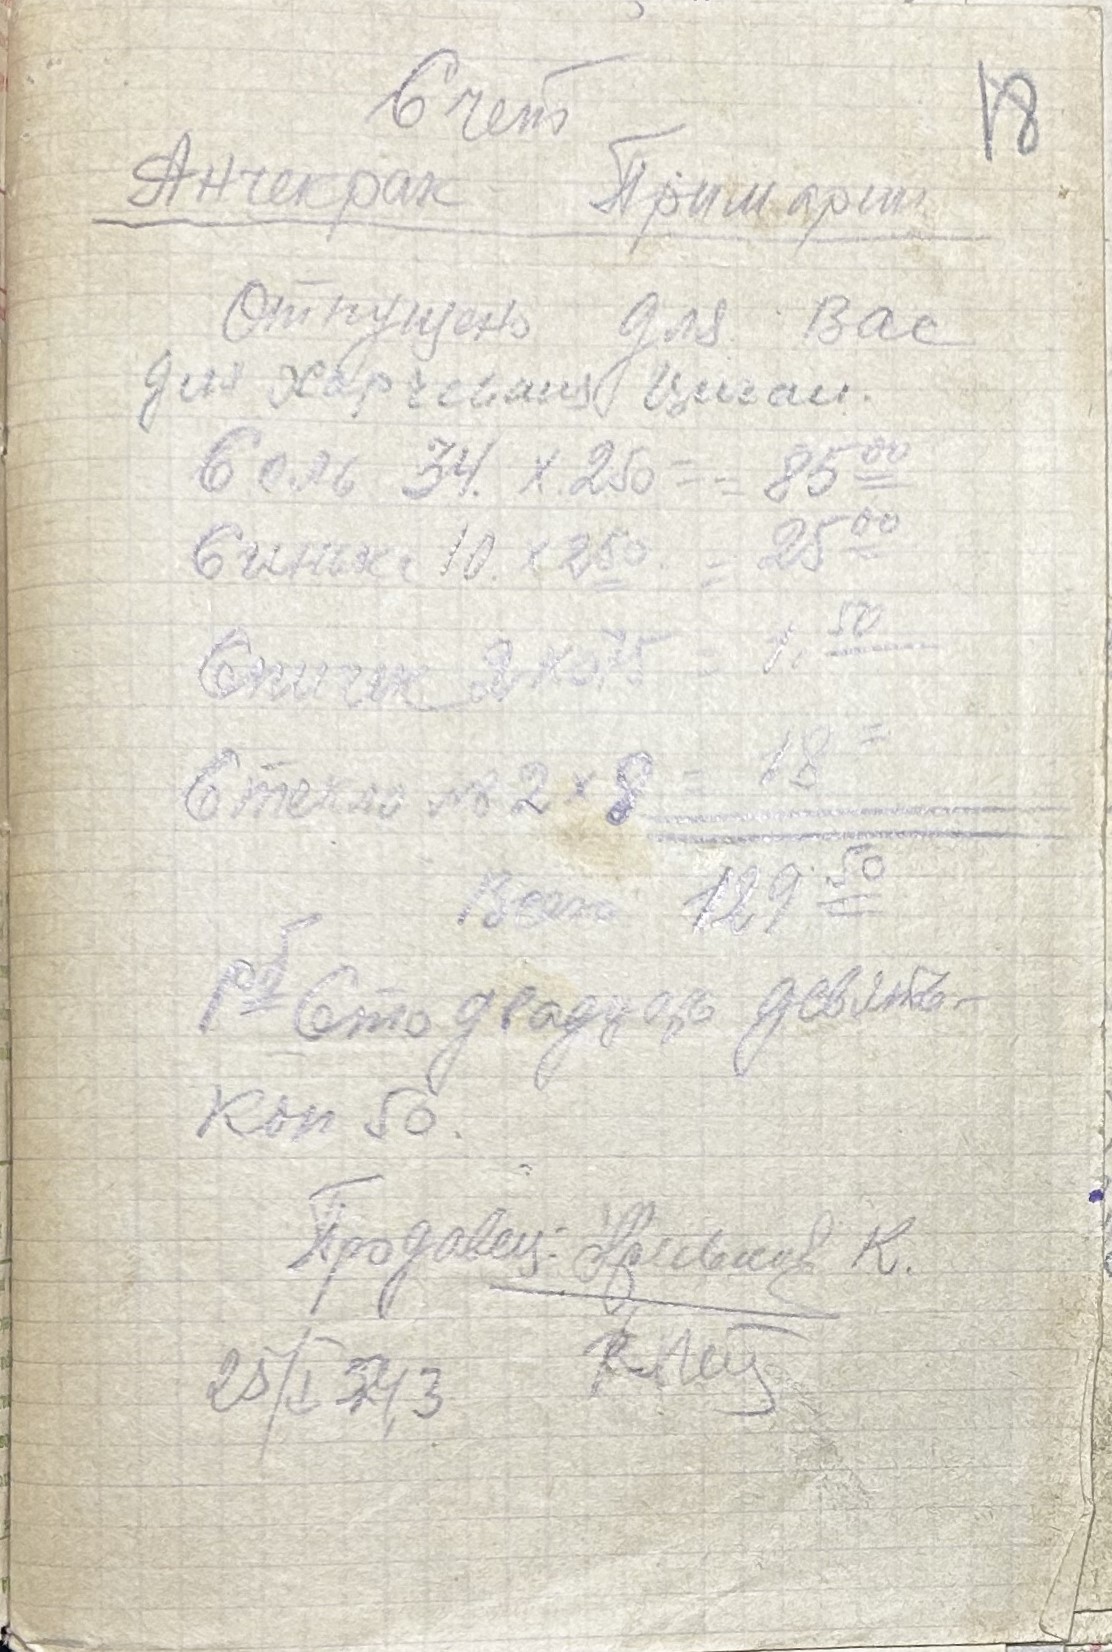 18
Счет
Анчекрак Примарии
Отпущень для Вас
для харчеваня Циган.
Соль 34. х 250 = = 85 00
Синька 10. х 250 = 25 00
Спичек 2 х 0,75 = 1. 50
Стекло № 2 х 8 = 18 =
Всего 129 50
Рб Сто двадцать девять-
Коп 50.
Продавец: К.
25/I 43